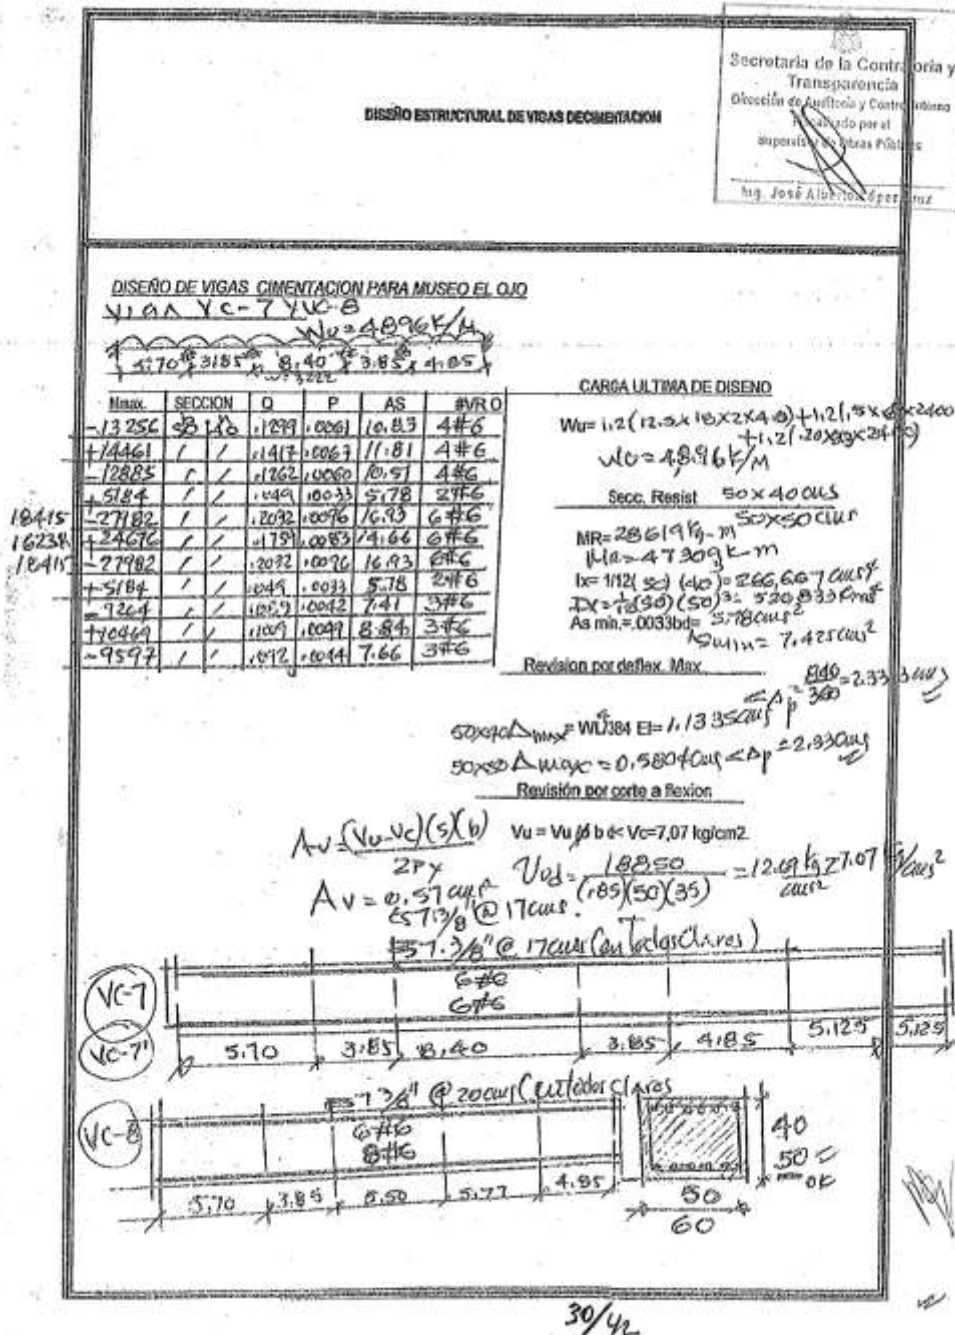 Secretaría de la Contraloría y
Transparencia
Dirección de Auditoría y Control Interno
Supervisor de Obras Públicas
Ing. José Alberto López Cruz
DISEÑO ESTRUCTURAL DE VIGAS DECIMENTACION
DISEÑO DE VIGAS CIMENTACION PARA MUSEO EL OJO
VIGA VC-7 Y VC-8
Wu=4896K/M
5.70 3.85 8.40 3.85 4.85
Mmax. SECCION Q P AS #VR O
-13256 .1299 .0061 10.83 4#6
+14461 / / .1417 .0067 11.81 4#6
-12885 / / .1262 .0060 10.51 4#6
+5184 / / .0033 5.78 2#6
18415 -27982 / / .2032 .0096 16.93 6#6
16238 +24676 / / .0083 14.66 6#6
18415 -27982 / / .2032 .0096 16.93 6#6
+5184 / / .0033 5.78 2#6
-9264 / / .0042 7.41 3#6
+10469 / / .1009 .0049 8.84 3#6
-9597 / / .0044 7.66 3#6
CARGA ULTIMA DE DISENO
Wu=
Wu=4896K/M
Secc. Resist 50x40cms
50x50cms
MR=28619Kg-m
MR=47309K-m
Ix= 1/12( 50) (40)³=266,667cms⁴
IX=1/12(50)(50)³= 520,833
As min.=.0033bd= 5.78cms²
Asmin= 7.425cms²
Revision por deflex. Max
840/360=2.333cms
50x40 Δmax= WL⁴/384 EI= 1.1335cms < Δp
50x50 Δmax=0.5804cms<Δp=2.330cms
Revisión por corte a flexion
Av=(Vu-Vc)(s)(b)/2Fy
Vu = Vu /Ø b d< Vc=7,07 kg/cm2
Av=0.57cms²
Vud=18850/(.85)(50)(35) =12.69kg/cms²>7.07kg/cms²
EST 3/8" @ 17cms.
EST. 3/8" @ 17cms(en todos Claros)
VC-7
6#6
6#6
VC-7'
5.70 3.85 8.40 3.85 4.85 5.125 5.125
EST 3/8" @ 20cms(en todos claros
VC-8
6#6
8#6
5.70 3.85 5.50 5.77 4.85
40
50
OK
50
60
30/42